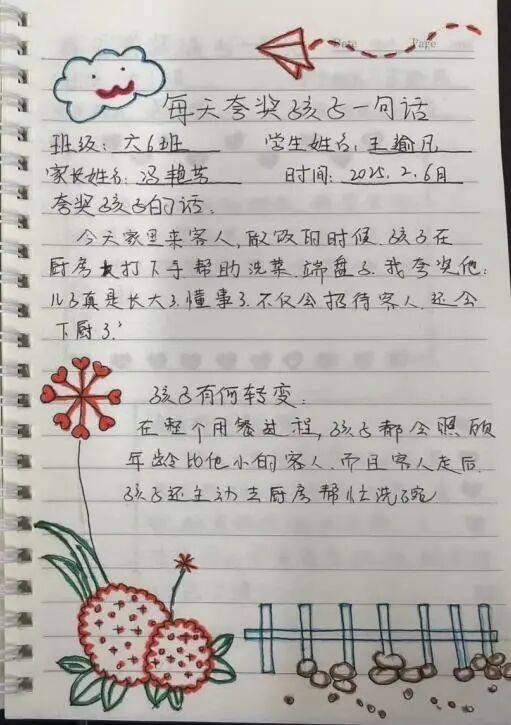 Date Page
每天夸奖孩子一句话
班级：六6班 学生姓名：王瑜凡
家长姓名：冯艳芳 时间：2025.2.6月
夸奖孩子的话：
今天家里来客人，做饭的时候，孩子在
厨房打下手帮助洗菜、端盘子，我夸奖他：
儿子真是长大了，懂事了，不仅会招待客人，还会
下厨了！
孩子有何转变：
在整个用餐过程，孩子都会照顾
年龄比他小的客人，而且客人走后，
孩子还主动去厨房帮忙洗碗